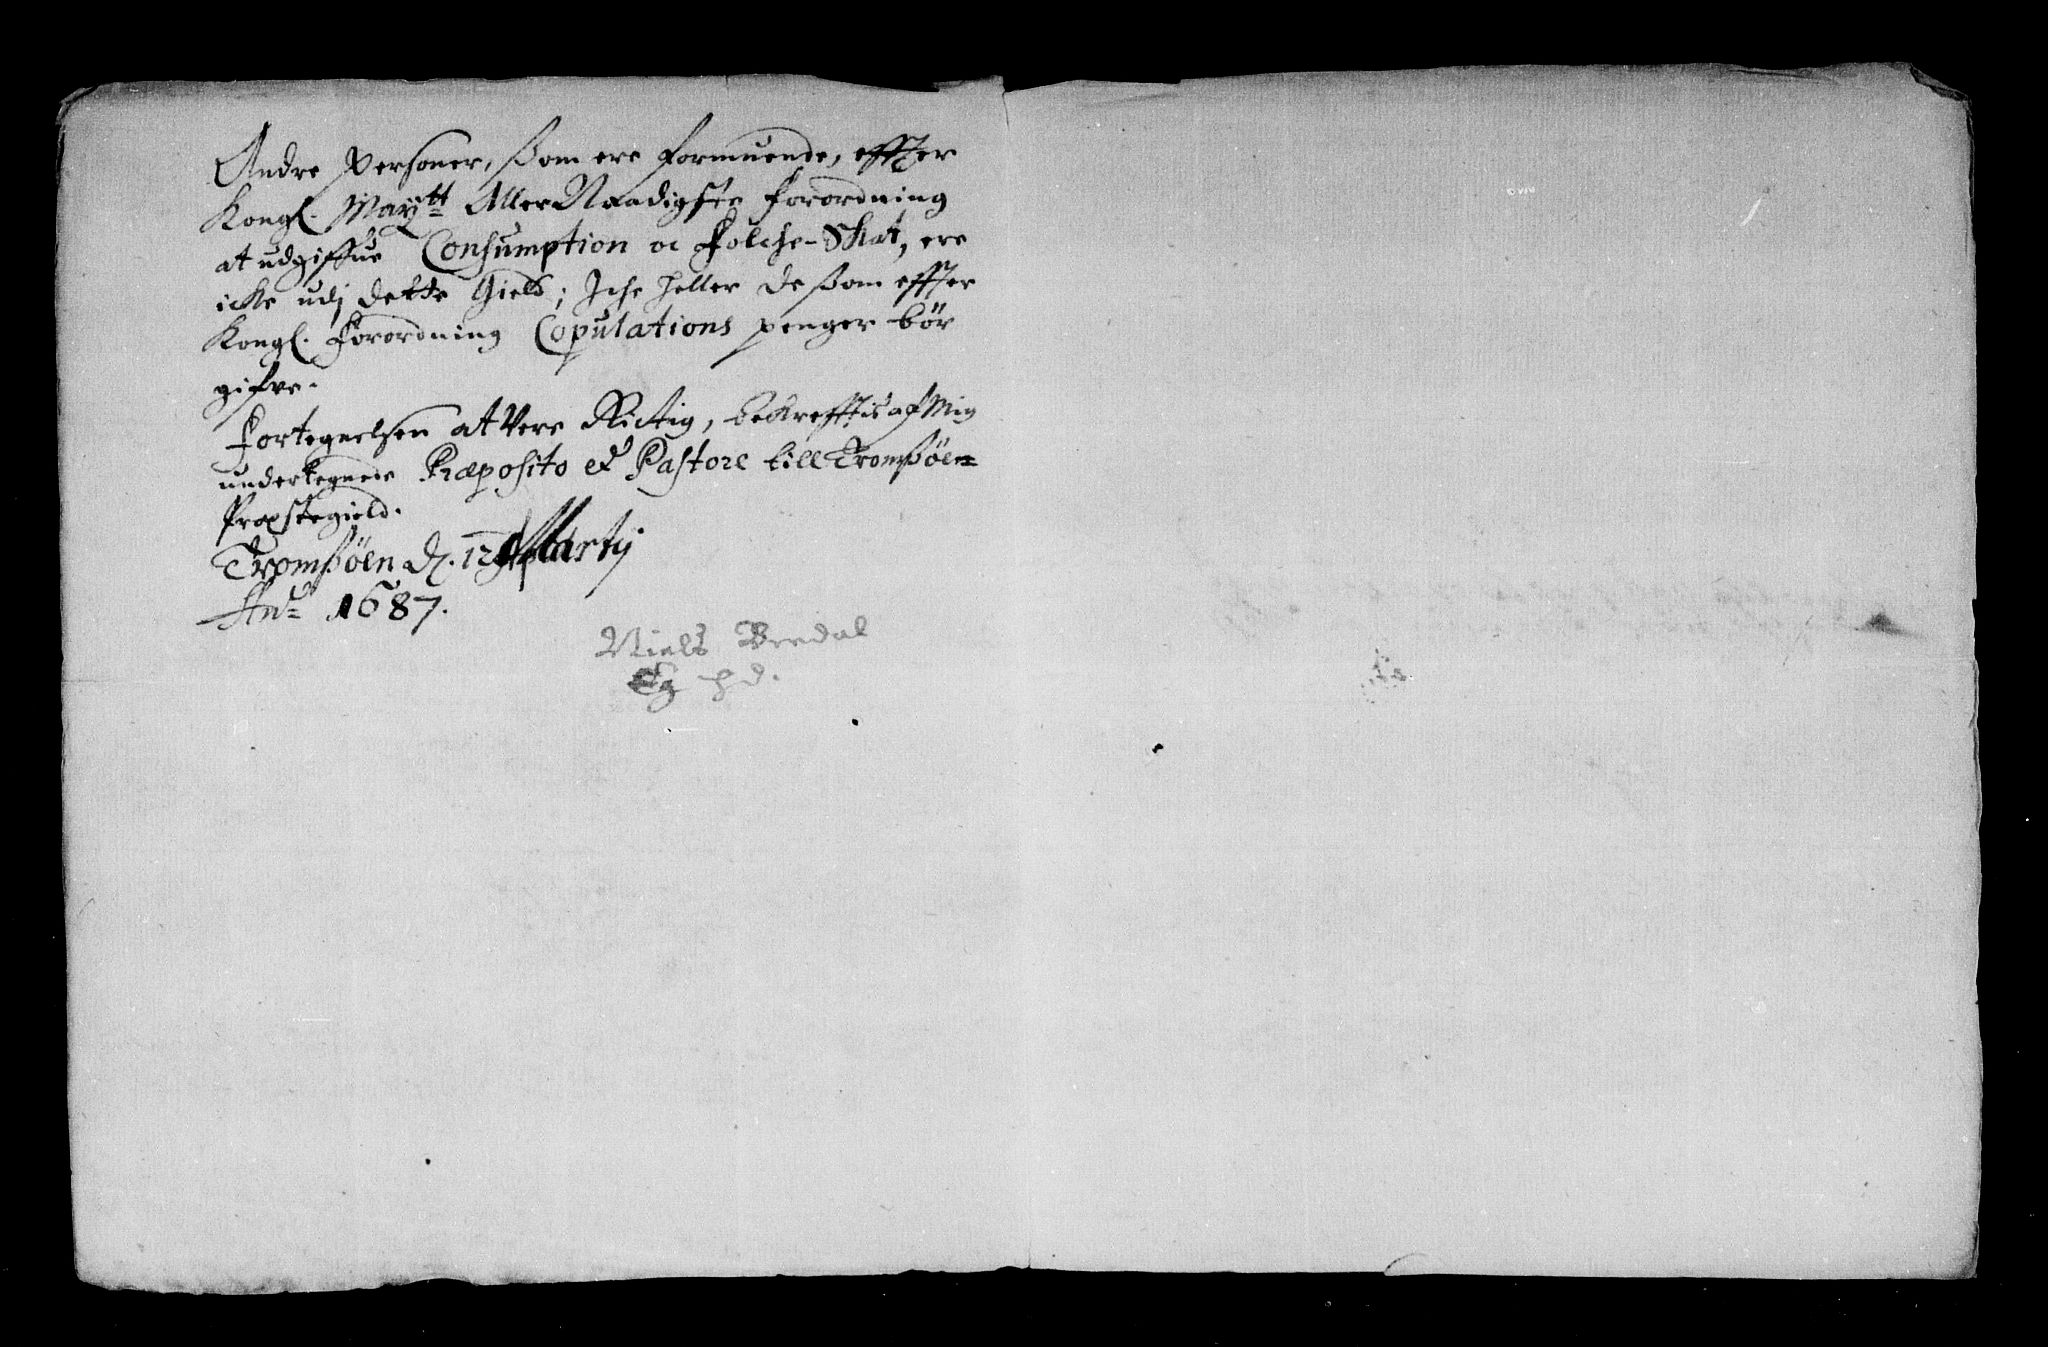 Andre Personer, ßom ere formuende, effter
Kongl. Maytt AllerNaadigste forordning
at udgiffue Consumption oc Folche-Skat, ere
icke udj dette Gield; Iche heller de ßom effter
Kongl. forordning Copulations penger bör
gifve.
Fortegnelsen at Vere Rictig, bekrefftis af Mig
undertegnede Præposito et Pastore till Tromßöen
Propstegield.
Tromßöen d. 12 Martij
Ano 1687.
Niels Bredal
Eg hd.